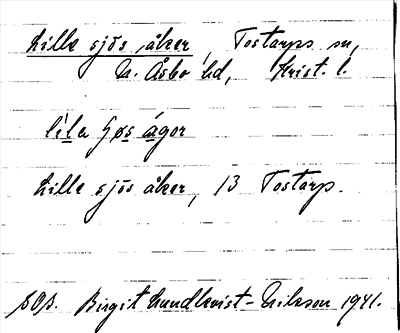 Lille sjös åker, Tostarps sn,
N. Åsbo hd, Krist. l.
líla ʃøs ágor
Lille sjös åker, 13 Tostarp.
Birgit Lundkvist-Eriksson 1941.